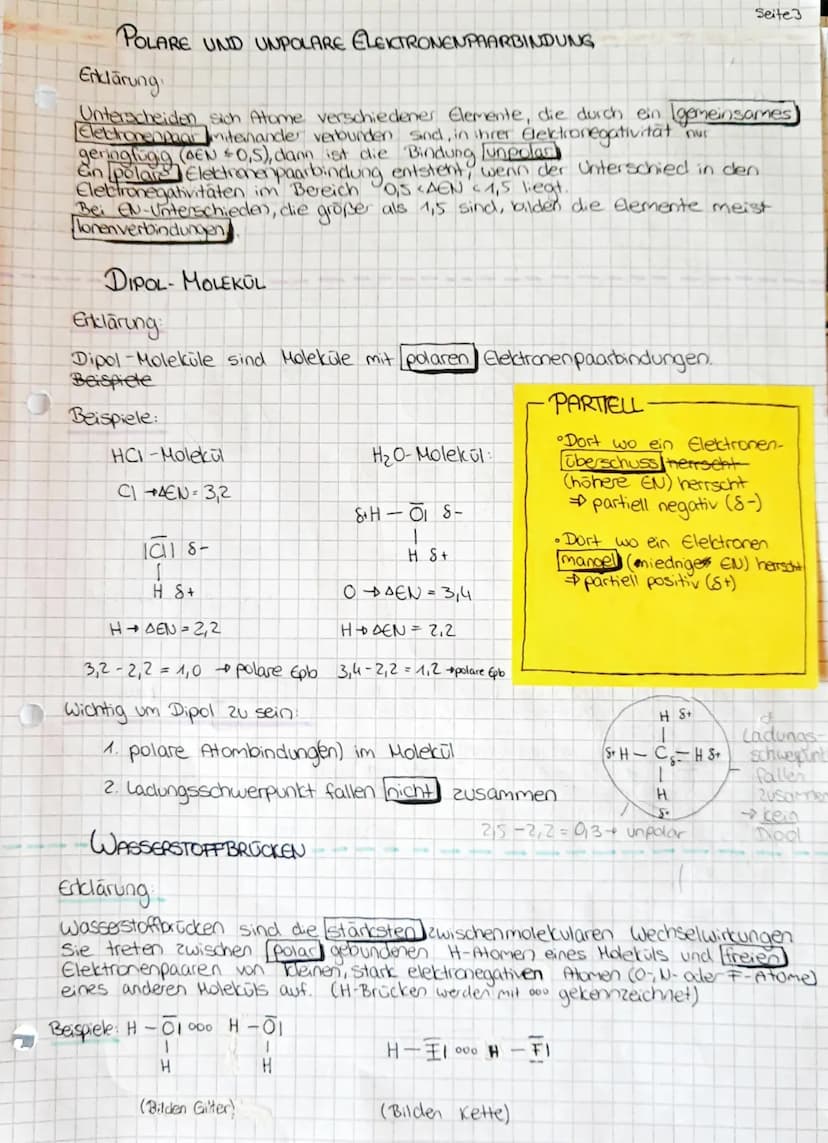 Seite 3
POLARE UND UNPOLARE ELEKTRONENPAARBINDUNG
Erklärung:
Unterscheiden sich Atome verschiedener Elemente, die durch ein gemeinsames
Elektronenpaar miteinander verbunden sind, in ihrer Elektronegativität nur
geringfügig (ΔEN ≤ 0,5), dann ist die Bindung unpolar
Ein polare Elektronenpaarbindung entsteht, wenn der Unterschied in den
Elektronegativitäten im Bereich 0,5 < ΔEN < 1,5 liegt.
Bei EN-Unterschieden, die größer als 1,5 sind, bilden die Elemente meist
Ionenverbindungen.
DIPOL-MOLEKÜL
Erklärung:
Dipol-Moleküle sind Moleküle mit polaren Elektronenpaarbindungen.
Beispiele
Beispiele:
HCl-Molekül
Cl → ΔEN = 3,2
|C̅l̅| δ-
|
H δ+
H → ΔEN = 2,2
3,2 - 2,2 = 1,0 → polare Epb
H₂O-Molekül:
δ+ H – O̅| δ-
|
H δ+
O → ΔEN = 3,4
H → ΔEN = 2,2
3,4 - 2,2 = 1,2 → polare Epb
PARTIELL
• Dort wo ein Elektronen-
überschuss herrscht
(höhere EN) herrscht
⇒ partiell negativ (δ-)
• Dort wo ein Elektronen
mangel (niedrige EN) herrscht
⇒ partiell positiv (δ+)
Wichtig um Dipol zu sein:
1. polare Atombindung(en) im Molekül
2. Ladungsschwerpunkt fallen nicht zusammen
H δ+
|
δ+ H – C – H δ+
δ-
|
H
δ+
Ladungs-
schwerpunkt
fallen
zusammen
→ kein
Dipol
2,5 - 2,2 = 0,3 → unpolar
WASSERSTOFFBRÜCKEN
Erklärung:
Wasserstoffbrücken sind die stärksten zwischenmolekularen Wechselwirkungen
Sie treten zwischen polar gebundenen H-Atomen eines Moleküls und freien
Elektronenpaaren von kleinen, stark elektronegativen Atomen (O-, N- oder F-Atome)
eines anderen Moleküls auf. (H-Brücken werden mit ooo gekennzeichnet)
Beispiele: H – O̅| ooo H – O̅|
| |
H H
(Bilden Gitter)
H – F̲̅| ooo H – F̲̅|
(Bilden Kette)